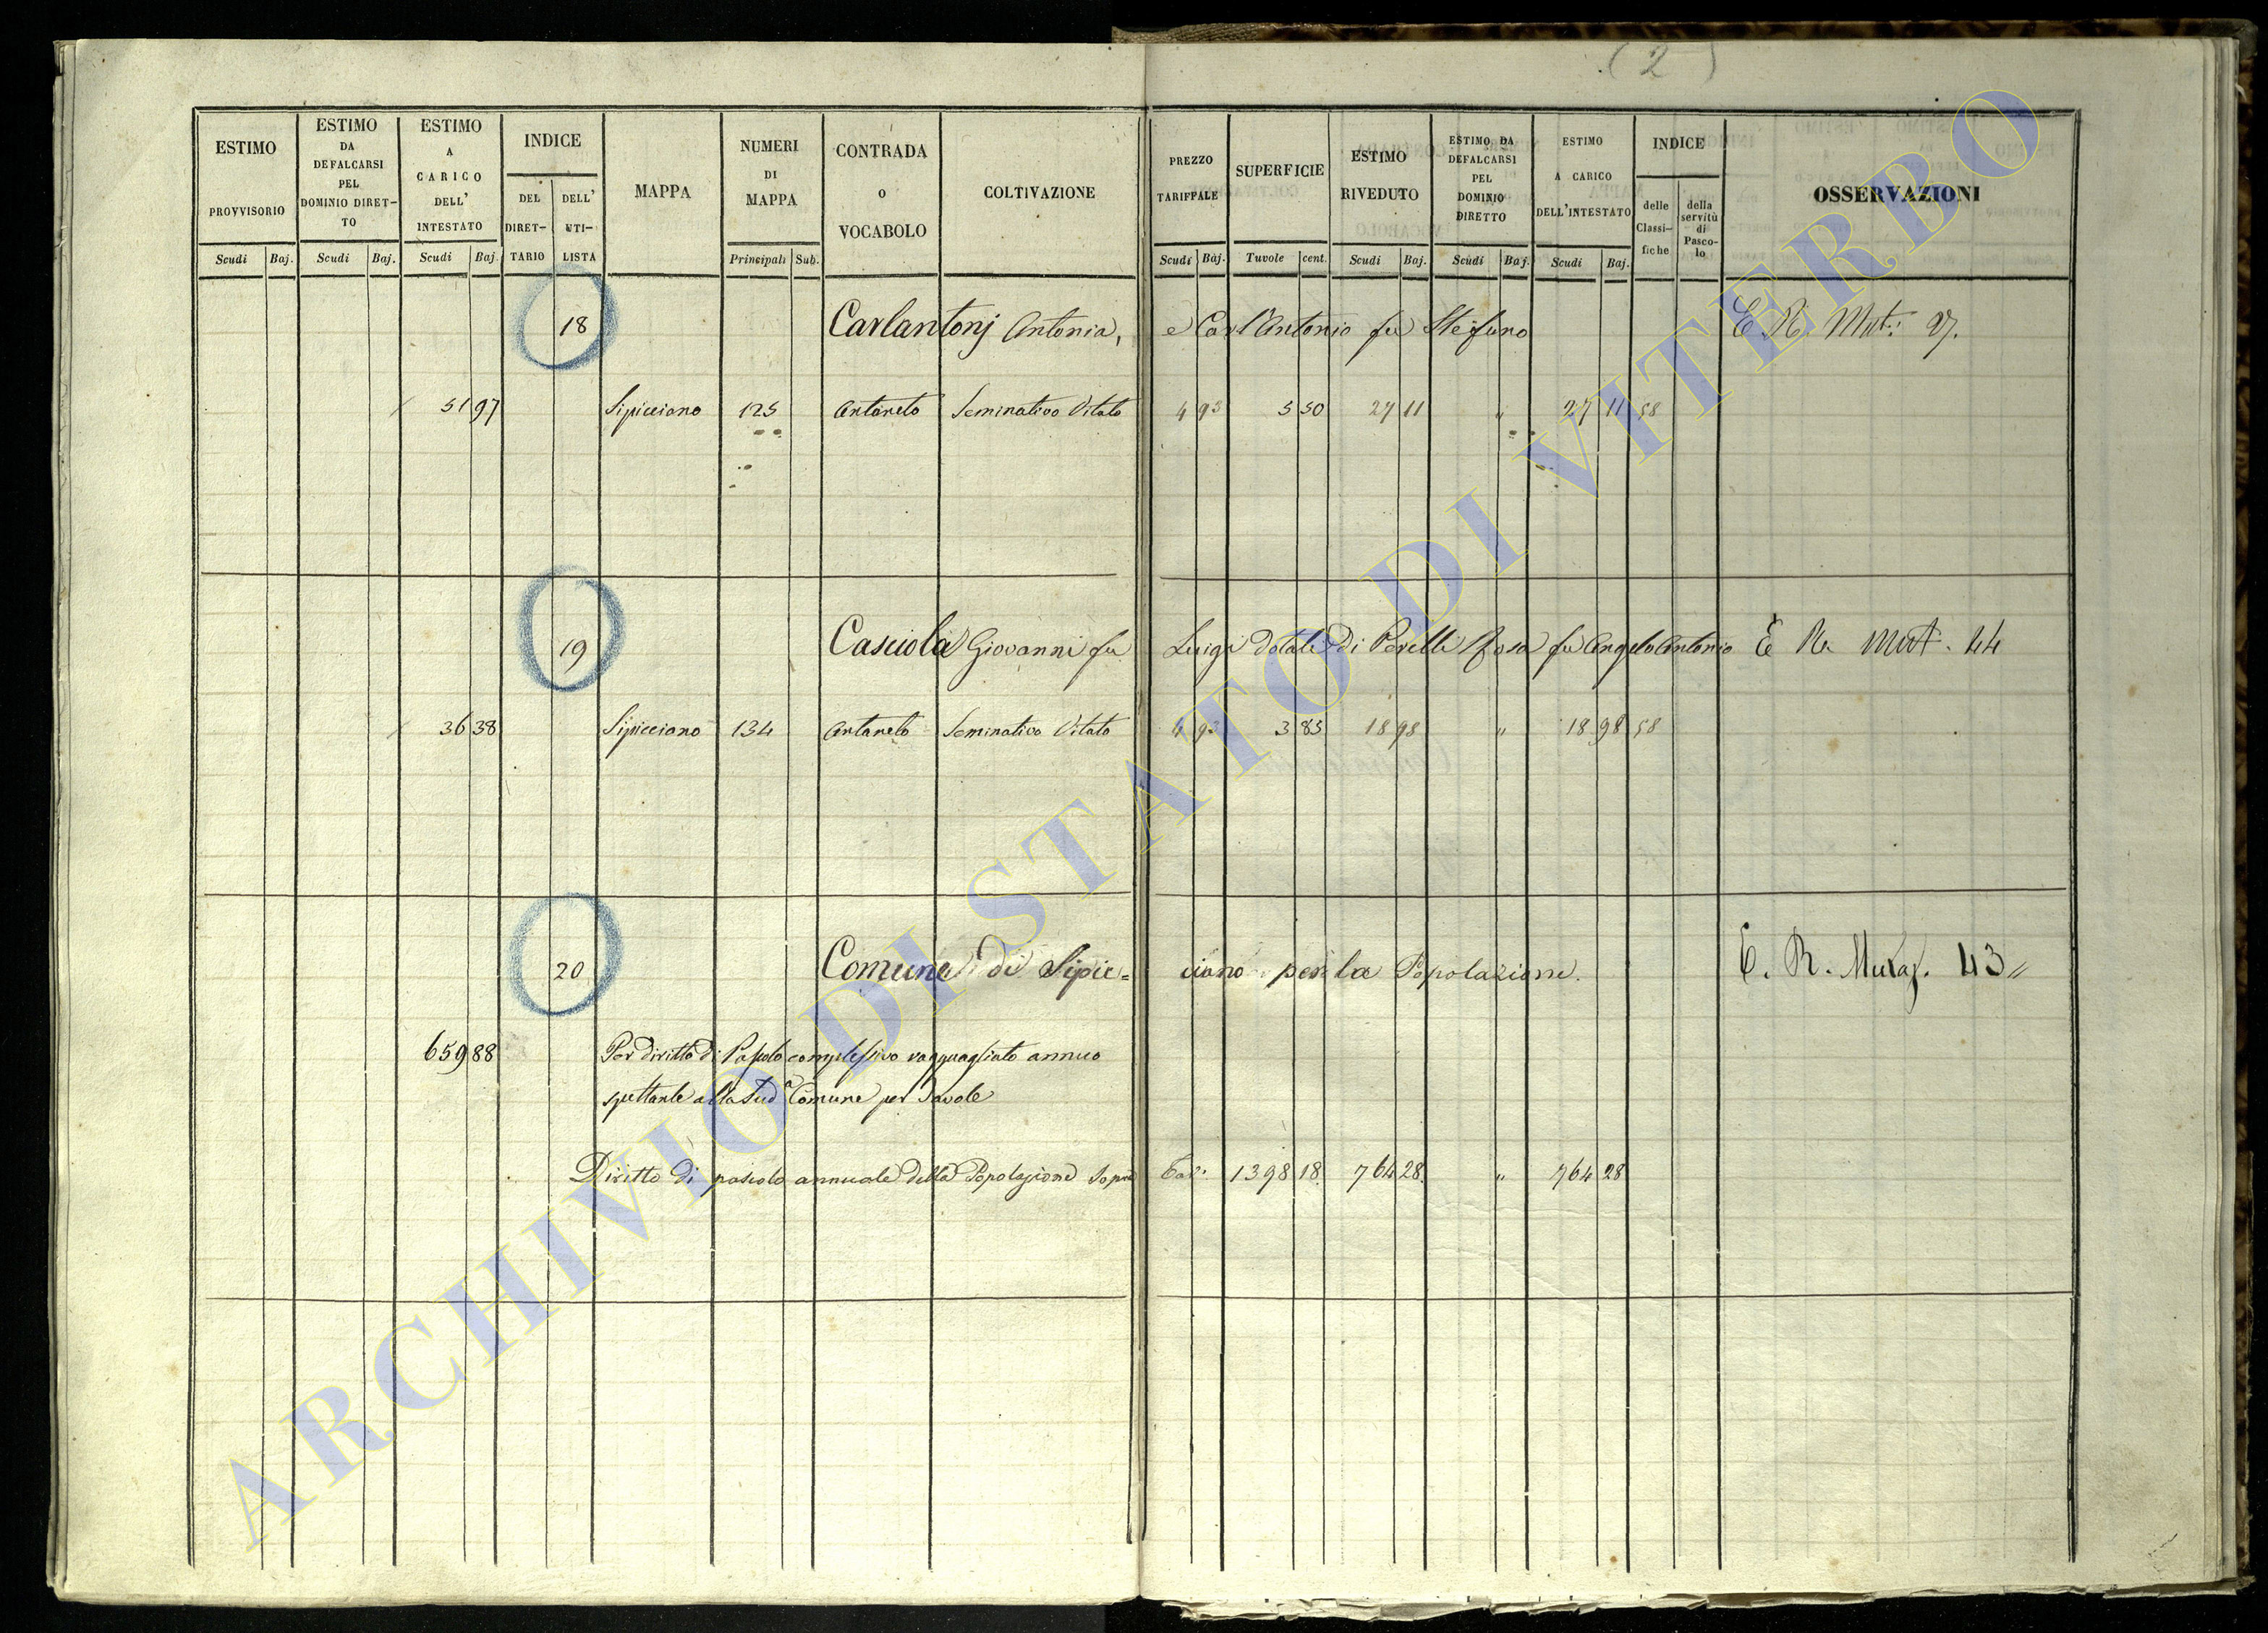 (2)
ESTIMO PROVVISORIO
ESTIMO DA DEFALCARSI PEL DOMINIO DIRETTO
ESTIMO A CARICO DELL' INTESTATO
INDICE
DEL DIRETTARIO
DELL' UTILISTA
MAPPA
NUMERI DI MAPPA
CONTRADA o VOCABOLO
COLTIVAZIONE
PREZZO TARIFFALE
SUPERFICIE
ESTIMO RIVEDUTO
ESTIMO DA DEFALCARSI PEL DOMINIO DIRETTO
ESTIMO A CARICO DELL'INTESTATO
INDICE
delle Classifiche
della servitù di Pascolo
OSSERVAZIONI
Scudi Baj. Scudi Baj. Scudi Baj. Principali Sub. Scudi Baj. Tavole cent. Scudi Baj. Scudi Baj. Scudi Baj.
18 Carlantonj Antonia, e Carl'Antonio fu Stefano E R. Mut: 27.
51 97 Sipicciano 125 Antaneto Seminativo Vitato 4 93 5 50 27 11 " 27 11 58
19 Casciola Giovanni fu Luigi dotale di Perelli Rosa fu Angelo Antonio E R. Mut. 44
36 38 Sipicciano 134 Antaneto Seminativo Vitato 4 93 3 85 18 98 " 18 98 58
20 Comune di Sipic= ciano per la Popolazione. E. R. Mutaz. 43 "
659 88 Per diritto di Pascolo complessivo ragguagliato annuo
spettante alla Sudª Comune per Tavole
Diritto di pascolo annuale della Popolazione sopra Tav. 1398 18 764 28 " 764 28
ARCHIVIO DI STATO DI VITERBO